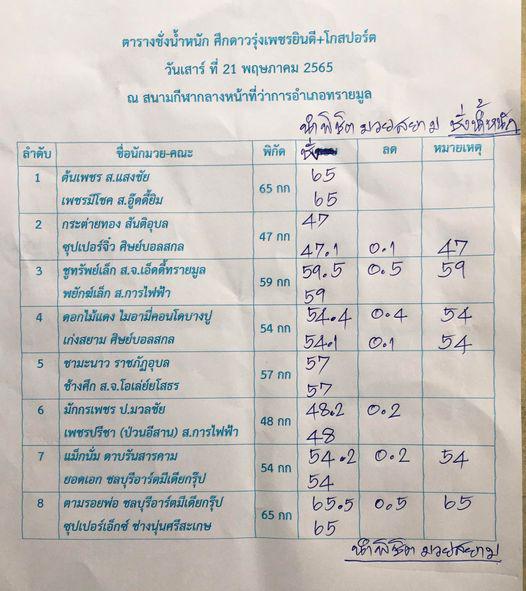 ตารางชั่งน้ำหนัก ศึกดาวรุ่งเพชรยินดี+โกสปอร์ต
วันเสาร์ ที่ 21 พฤษภาคม 2565
ณ สนามกีฬากลางหน้าที่ว่าการอำเภอทรายมูล
นำพิชิต มวยสยาม ชั่งน้ำหนัก
ลำดับ ชื่อนักมวย-คณะ พิกัด ชั่ง ลด หมายเหตุ
1 ต้นเพชร ส.แสงชัย 65 กก 65
เพชรมีโชค ส.อู๊ดดี้ยิม 65
2 กระต่ายทอง สันติอุบล 47 กก 47
ซุปเปอร์จิ๋ว ศิษย์บอลสกล 47.1 0.1 47
3 ชูทรัพย์เล็ก ส.จ.เอ็ดดี้ทรายมูล 59 กก 59.5 0.5 59
พยักฆ์เล็ก ส.การไฟฟ้า 59
4 ดอกไม้แดง ไมอามี่คอนโดบางปู 54 กก 54.4 0.4 54
เก่งสยาม ศิษย์บอลสกล 54.1 0.1 54
5 ชามะนาว ราชภัฏอุบล 57 กก 57
ช้างศึก ส.จ.โอเล่ย์ยโสธร 57
6 มักกรเพชร ป.มวลชัย 48 กก 48.2 0.2
เพชรปรีชา (ป่วนอีสาน) ส.การไฟฟ้า 48
7 แม็กนั่ม ดาบรันสารคาม 54 กก 54.2 0.2 54
ยอดเอก ชลบุรีอาร์ตมีเดียกรุ๊ป 54
8 ตามรอยพ่อ ชลบุรีอาร์ตมีเดียกรุ๊ป 65 กก 65.5 0.5 65
ซุปเปอร์เอ็กซ์ ช่างนุ่นศรีสะเกษ 65
นำพิชิต มวยสยาม